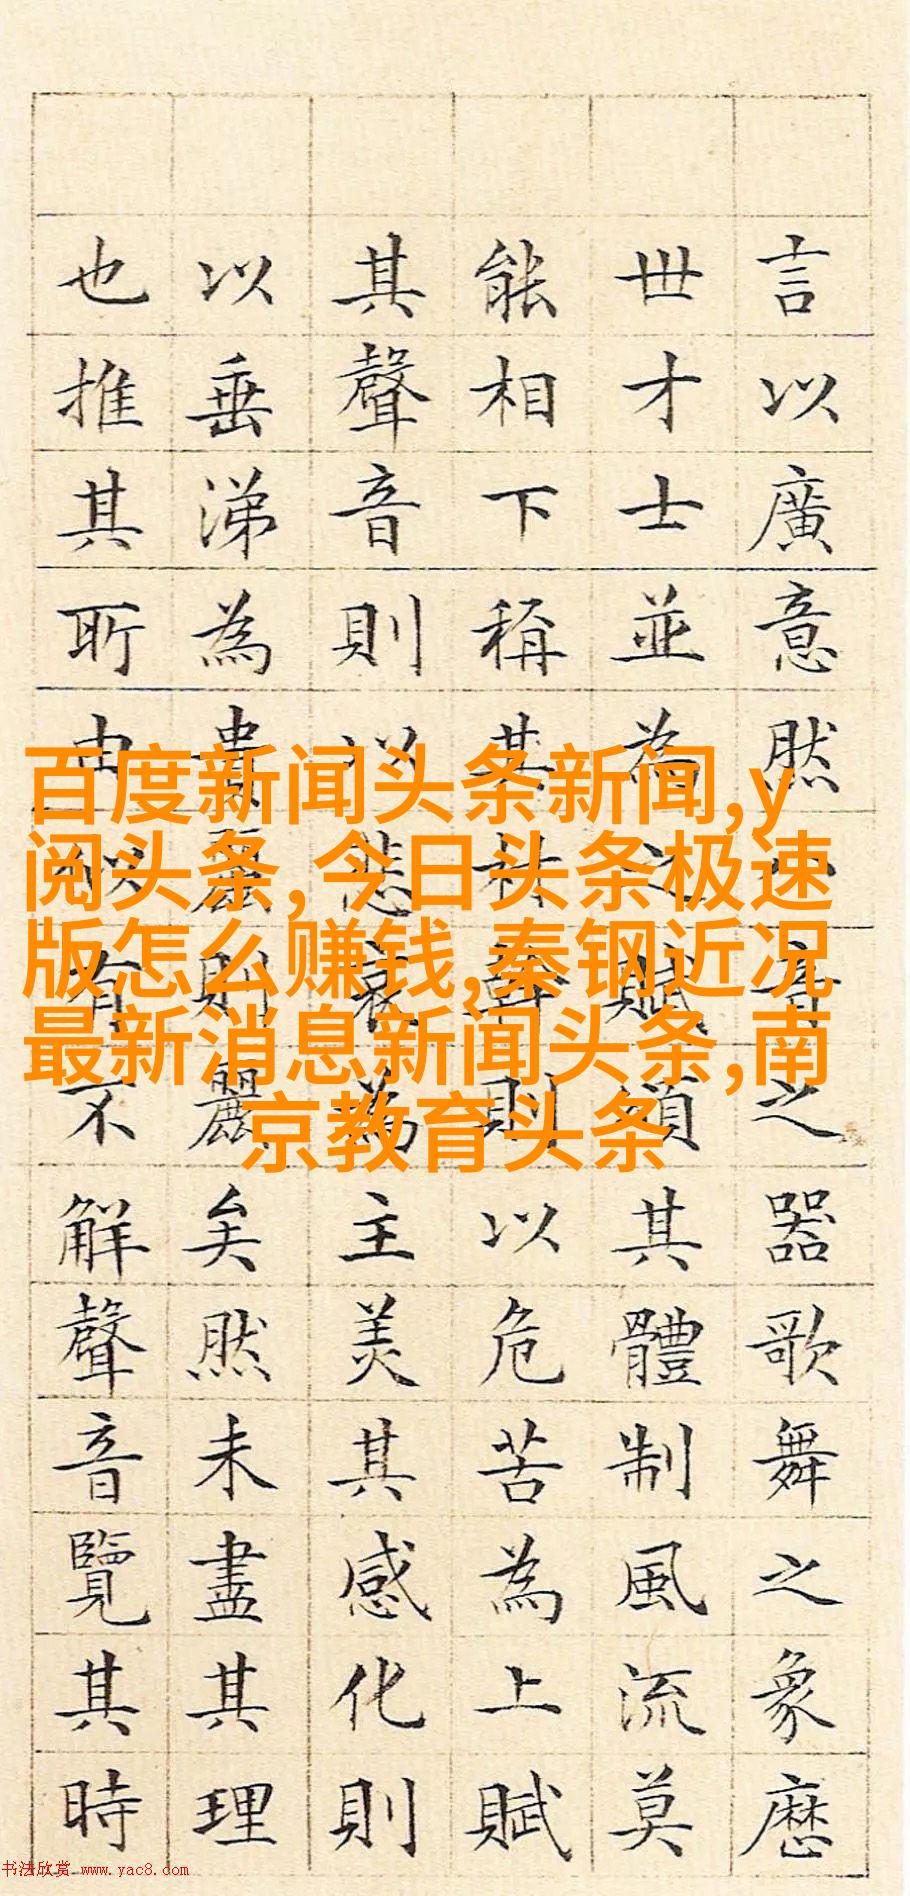 言以廣意然八音之器歌舞之象歷
世才士並為之賦頌其體制風流莫
能相下稱其材幹則以危苦為上賦
其聲音則以悲哀為主美其感化則
以垂涕為貴麗則麗矣然未盡其理
也推其所由似有不解聲音覽其時
百度新闻头条新闻,y
阅头条,今日头条极速
版怎么赚钱,秦钢近况
最新消息新闻头条,南
京教育头条
书法欣赏 www.yac8.com